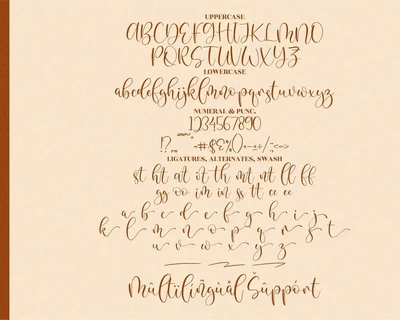 UPPERCASE
ABCDEFGHIJKLMNO
PQRSTUVWXYZ
LOWERCASE
abcdefghijklmnopqrstuvwxyz
NUMERAL & PUNC.
1234567890
LIGATURES, ALTERNATES, SWASH
st ht at it th mt nt ll ff
gg oo im in ss tt cc ee
a b c d e f g h i j
k l m n o p q r s t
u v w x y z
Mùltïlíñgùàl Šûppórt